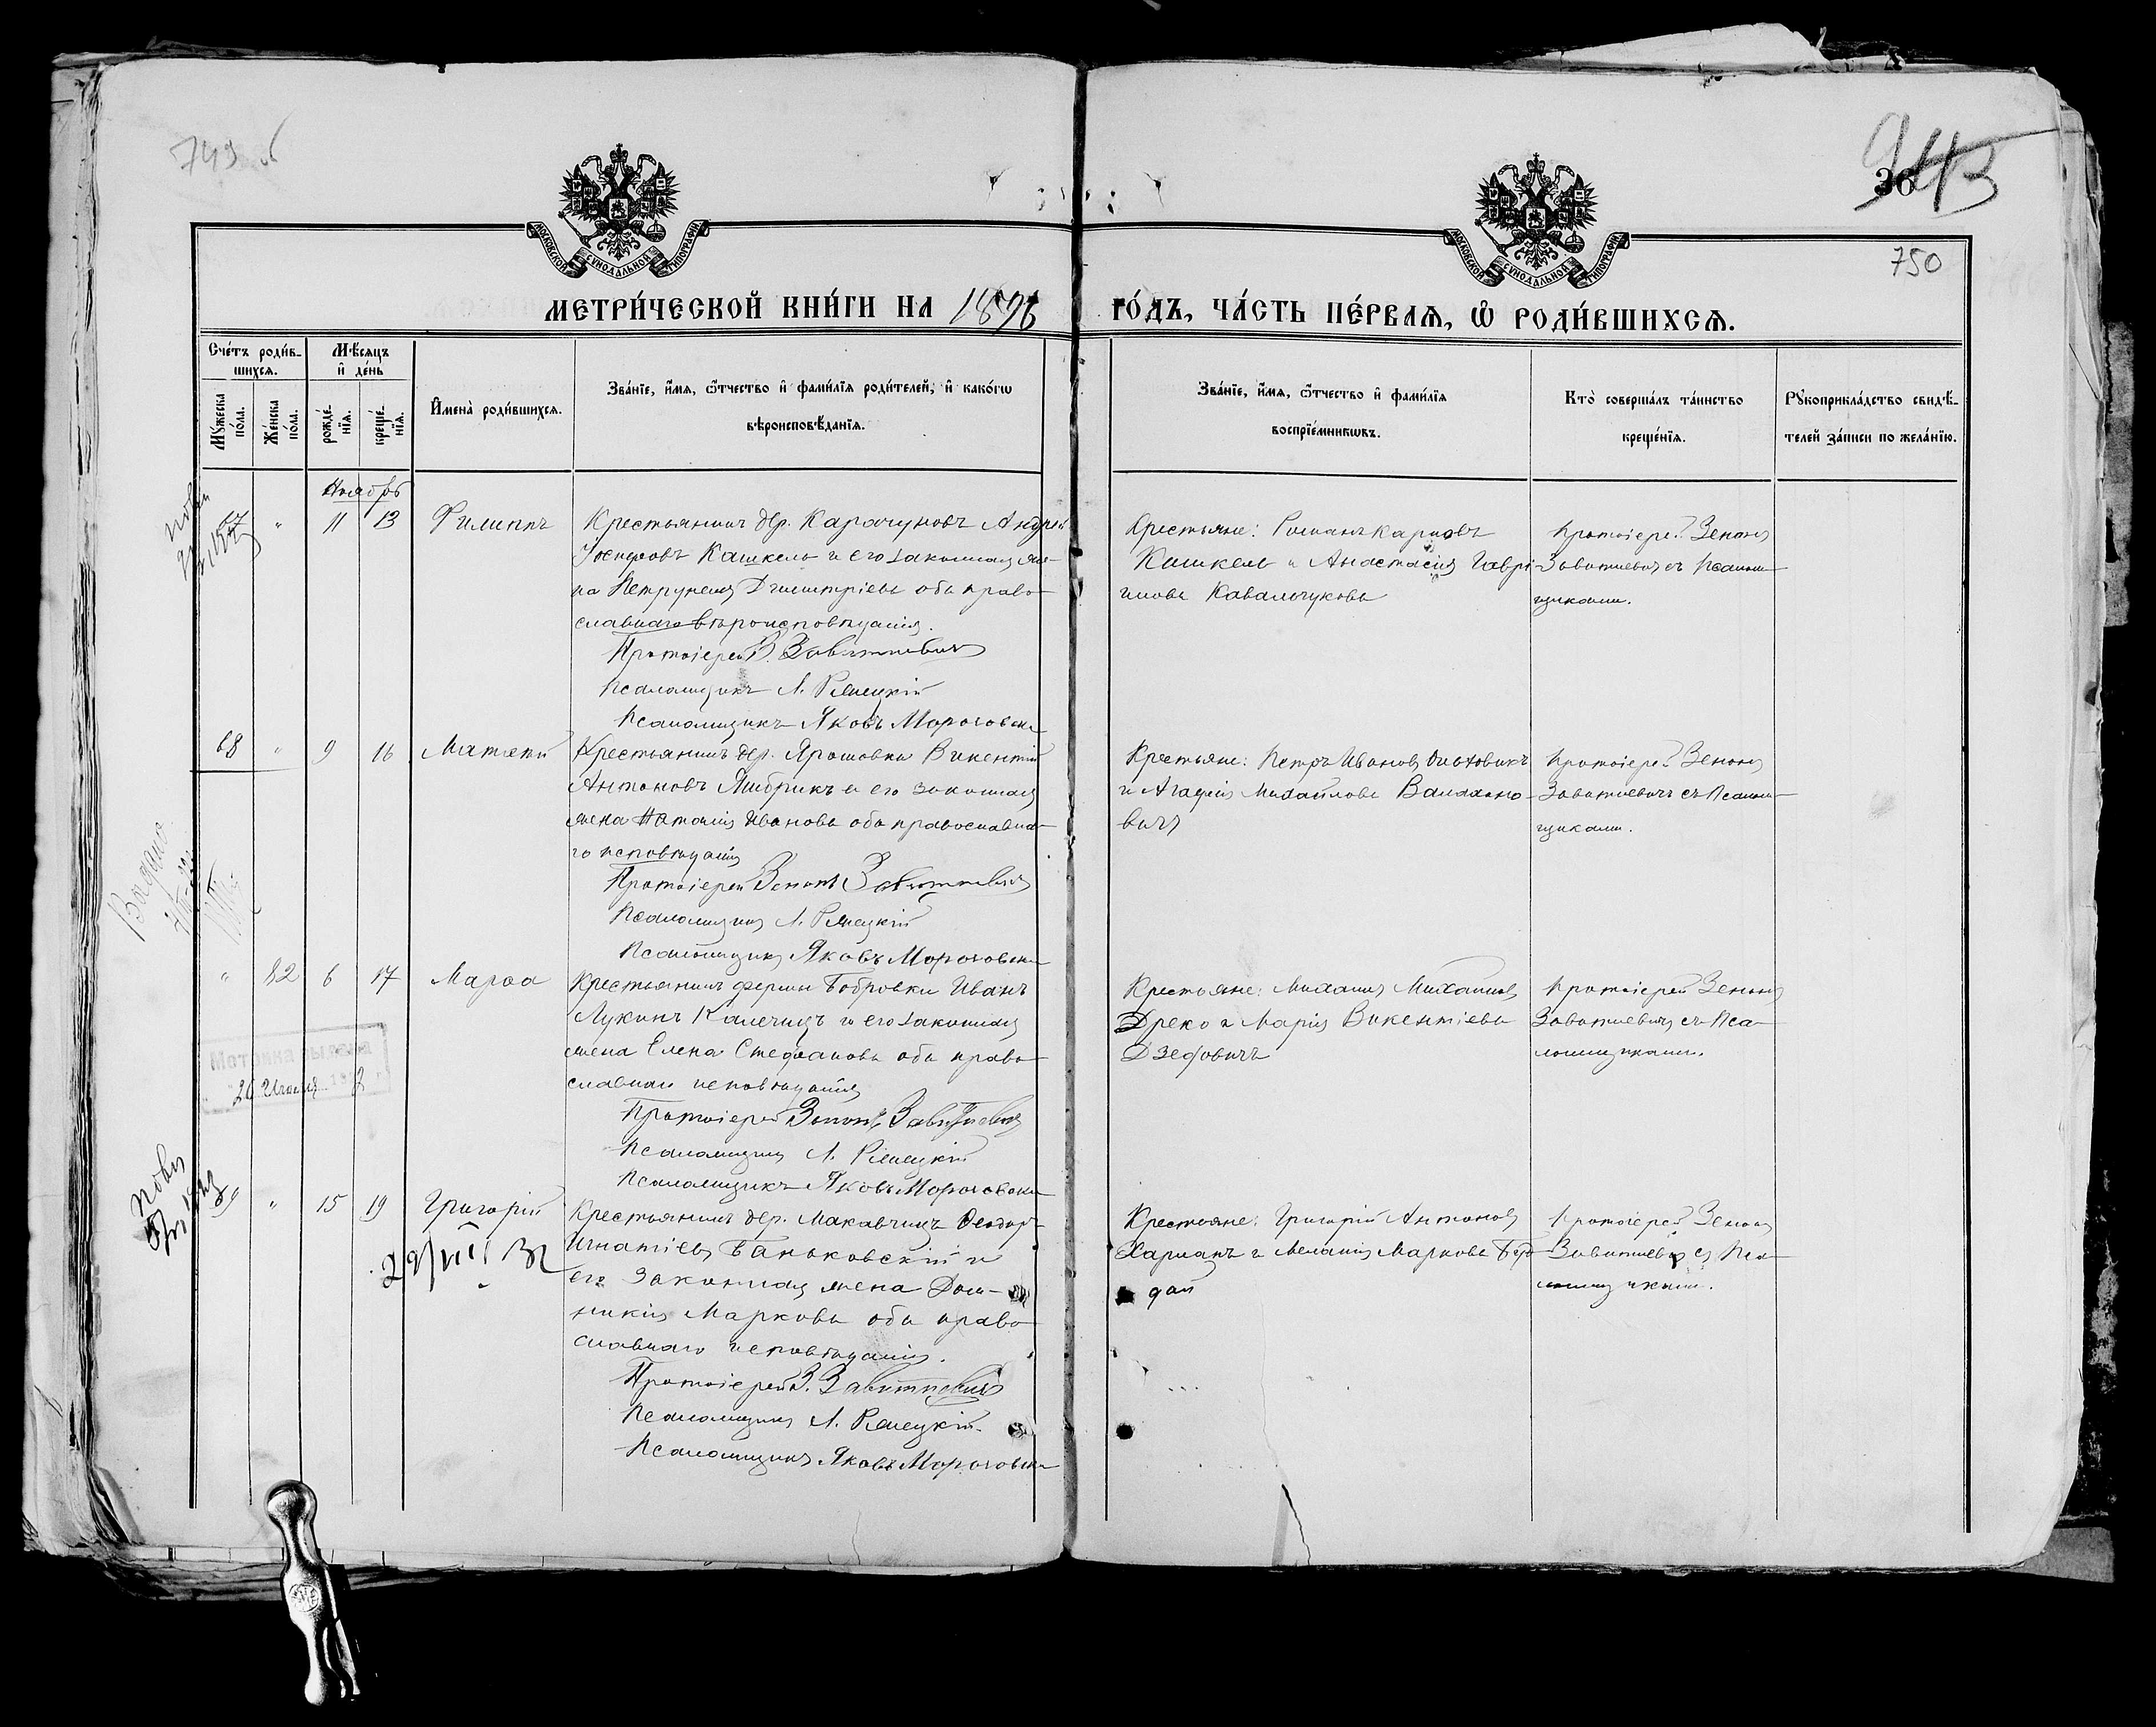 749 об
943
36
750
МОСКОВСКОЙ СѴНОДАЛЬНОЙ ТИПОГРАФІИ
МОСКОВСКОЙ СѴНОДАЛЬНОЙ ТИПОГРАФІИ
МЕТРИ́ЧЕСКОЙ КНИ́ГИ НА 1896 ГО́ДЪ, ЧА́СТЬ ПЕ́РВАЯ, Ѡ҆ РОДИ́ВШИХСЯ.
Сче́тъ роди́в-
шихся.
Мѣ́сяцъ
и҆ де́нь
Мꙋ́жеска
по́ла.
Же́нска
по́ла.
рожде́-
нїя.
креще́-
нїя.
И҆мена̀ роди́вшихся.
Зва́нїе, и҆́мя, ѻ҆́тчество и҆ фами́лїя роди́телей, и҆ како́гѡ
вѣроисповѣ́данїя.
Зва́нїе, и҆́мя, ѻ҆́тчество и҆ фами́лїя
воспрїе́мниковъ.
Кто̀ соверша́лъ та́инство
креще́нїя.
Рꙋкоприкла́дство свидѣ́-
телей за́писи по жела́нїю.
Ноябрь
67 " 11 13 Филиппъ
Крестьянинъ дер. Карачуновъ Андрей
Кашкель и его законная же-
на Петрунеля Дмитріева оба право-
славнаго вѣроисповѣданія.
Протоіерей З. Завитневичъ
Псаломщикъ Л.
Псаломщикъ Яковъ
Крестьяне: Романъ Карповъ
Кашкель и Анастасія Гаврі-
илова Ковальчукова
Протоіерей Зенонъ
Завитневичъ съ псалом-
щиками.
68 " 9 16 Матѳей
Крестьянинъ дер. Ярошовки Викентій
Антоновъ и его законная
жена Наталія Иванова оба православна-
го исповѣданія
Протоіерей Зенонъ Завитневичъ
Псаломщикъ Л.
Псаломщикъ Яковъ
Крестьяне: Петръ Ивановъ
и Агафія Михайлова
вичъ
Протоіерей Зенонъ
Завитневичъ съ псалом-
щиками.
" 52 6 17 Марѳа
Крестьянинъ фермы Бобровки Иванъ
Лукинъ Калечицъ и его законная
жена Елена Стефанова оба право-
славнаго исповѣданія
Протоіерей Зенонъ Завитневичъ
Псаломщикъ Л.
Псаломщикъ Яковъ
Крестьяне: Михаилъ Михайловъ
Дреко и Марія Викентіева
Дзефовичъ
Протоіерей Зенонъ
Завитневичъ съ пса-
ломщиками.
Метрика выдана
" 15 19 Григорій
Крестьянинъ дер. Макавчицъ Ѳеодоръ
Игнатіевъ Баньковскій и
его законная жена Дом-
никія Маркова оба право-
славнаго исповѣданія.
Протоіерей З. Завитневичъ
Псаломщикъ Л.
Псаломщикъ Яковъ
Крестьяне: Григорій Антоновъ
Харманъ и Меланія Маркова
Протоіерей Зенонъ
Завитневичъ съ пса-
ломщиками.